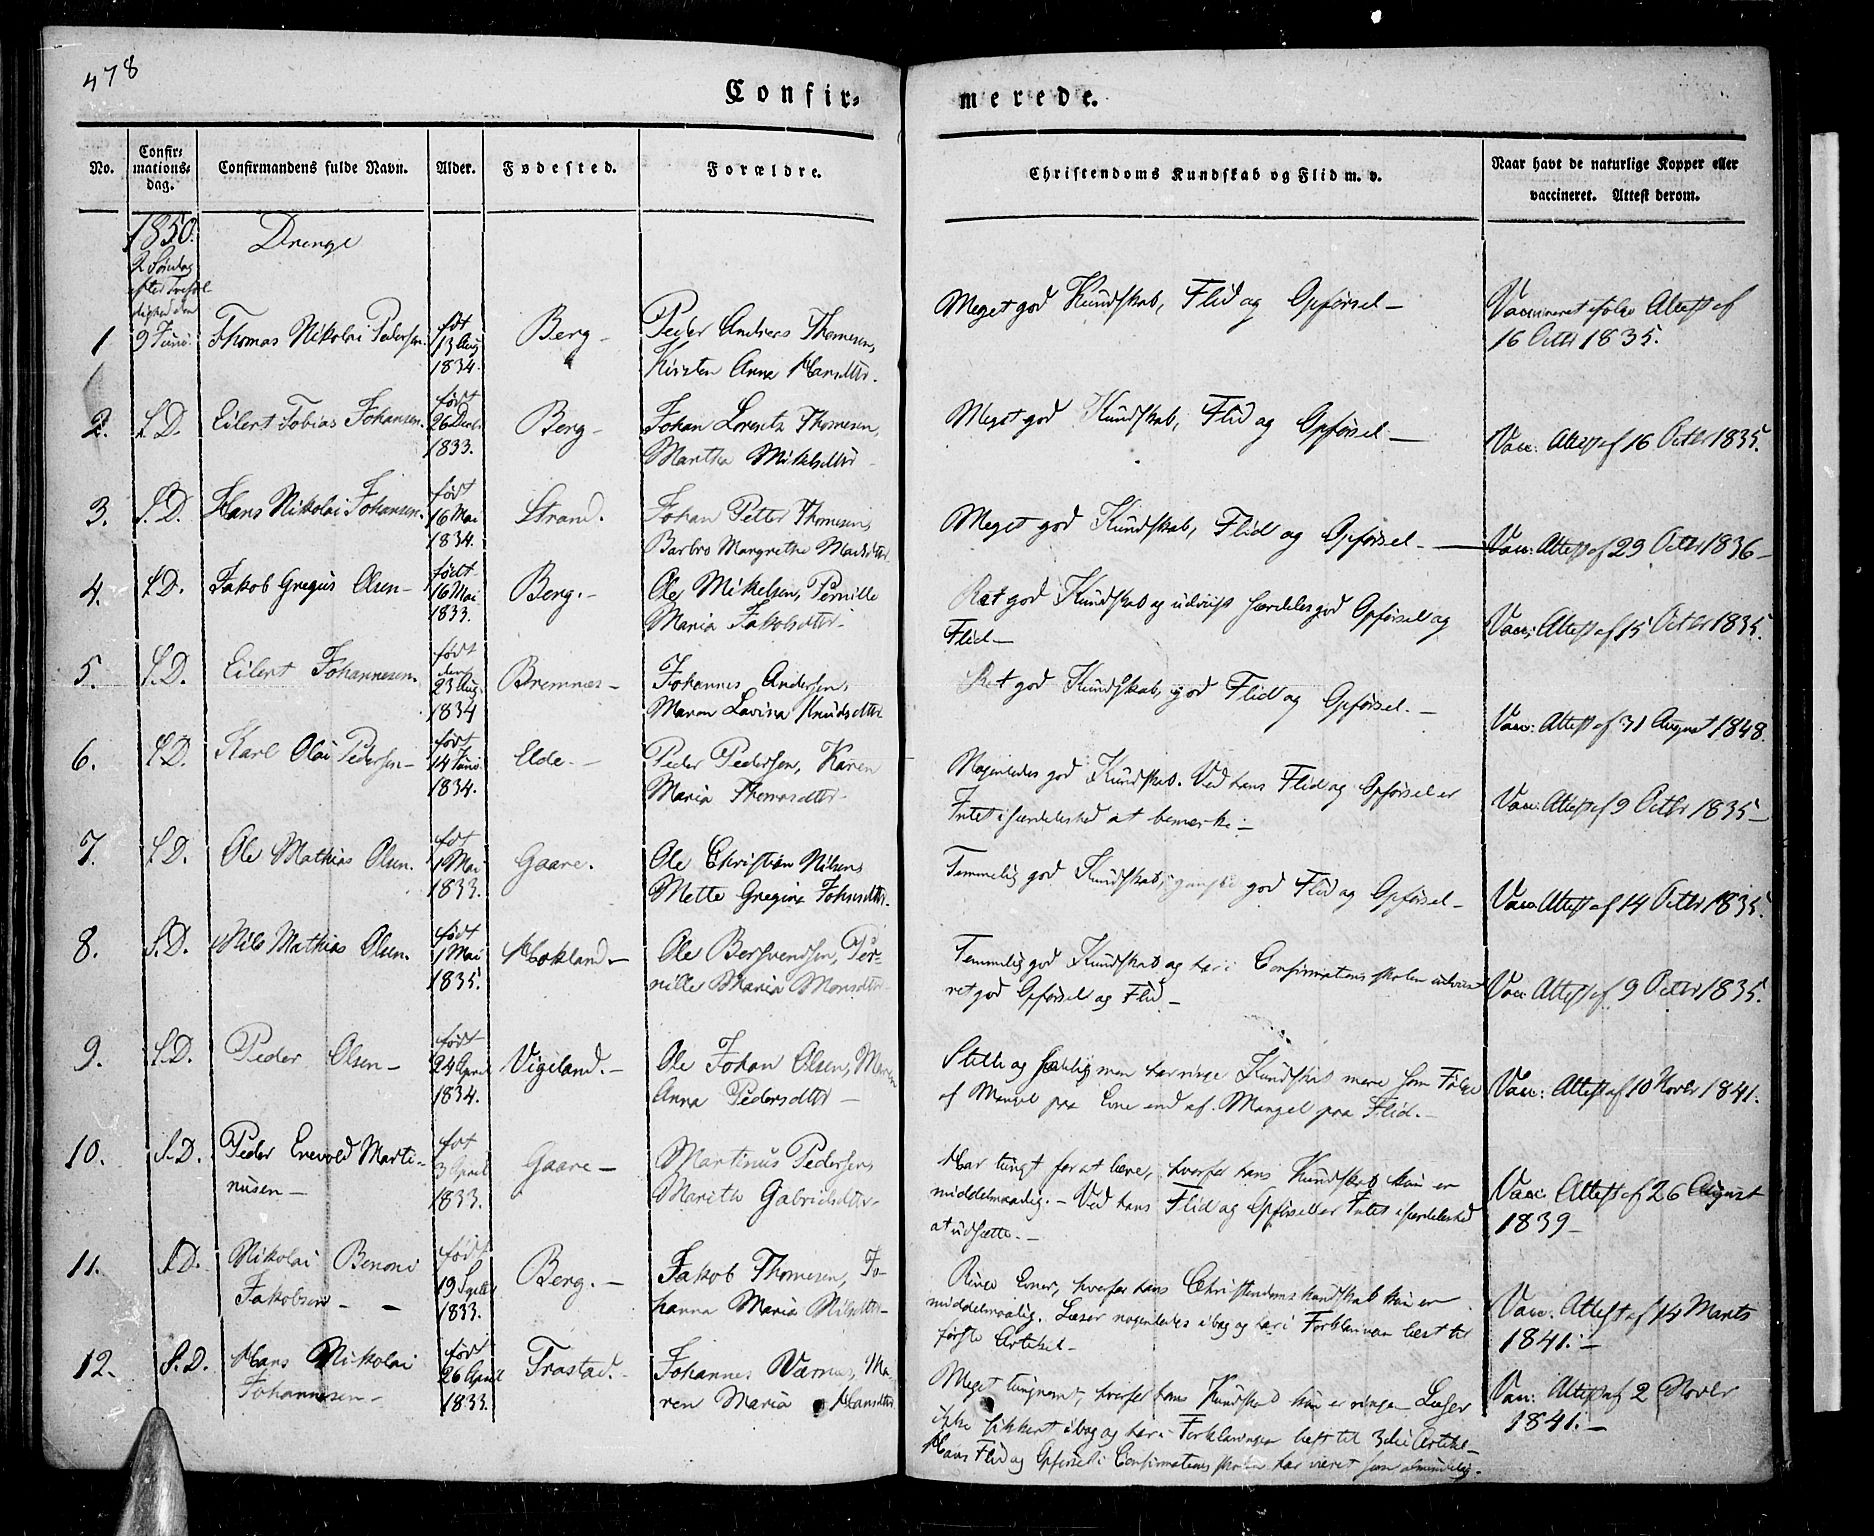 478
Confir-
merede.
No.
Confir-
mations-
dag.
Confirmandens fulde Navn.
Alder.
Fødested.
Forældre.
Christendoms Kundskab og Flid m. v.
Naar havt de naturlige Kopper eller
vaccineret. Attest derom.
1850.
Drenge
2 Søndag
efter Trefol
dighed den
1 9 Juni. Thomas Nikolai Pedersen. født 13 Aug 1834. Berg - Peder Andreas Thomesen,
Kirsten Anna Hansdttr.
Meget god Kundskab, Flid og Opførsel -
Vaccineret ifølge Attest af
16 Octbr 1835.
2. S. D. Eilert Tobias Johansen. født 26 Decbr 1833. Berg - Johan Lorents Thomesen,
Martha Mikelsdttr -
Meget god Kundskab, Flid og Opførsel -
Vacc: Attest af 16 Octbr 1835.
3. S. D. Hans Nikolai Johansen. født 16 Mai 1834. Strand. Johan Petter Thomesen,
Barbro Margrethe
Meget god Kundskab, Flid og Opførsel -
Vacc: Attest af 29 Octbr 1836 -
4. S. D. Jakob Gregus Olsen - født 16 Mai 1833. Berg. - Ole Mikelsen, Pernille
Maria Jakobsdttr -
Ret god Kundskab og udviist særdeles god Opførsel og
Flid -
Vacc: Attest af 15 Octbr 1835.
5. S. D. Eilert Johannesen. født den 23 Aug. 1834 Bremnæs - Johannes Andersen,
Maren Lavina Knudsdttr
Ret god Kundskab, god Flid og Opførsel. -
Vacc: Attest af 31 August 1848.
6. S. D. Karl Olai Pedersen - født 14 Juni 1834. Elde. - Peder Pedersen, Karen
Maria Thomasdttr -
Nogenledes god Kundskab. Ved hans Flid og Opførsel er
Intet i særdeleshed at bemerke -
Vacc: Attest af 9 Octbr 1835 -
7. S. D. Ole Mathias Olsen. født 1 Mai 1833. Gaare. Ole Christian Nilsen,
Mette Gregine Johnsdttr.
Temmelig god Kundskab, ganske god Flid og Opførsel -
Vacc Attest af 14 Octbr 1835.
8. S. D. Nils Mathias Olsen. født 1 Mai 1835. Hokland. - Ole Bersvendsen, Per-
nille Maria Monsdttr -
Temmelig god Kundskab og har i Confirmationsskolen udviist
ret god Opførsel og Flid -
Vacc Attest af 9 Octbr 1835.
9. S. D. Peder Olsen - født 24 April 1834. Vigeland. - Ole Johan Olsen, Maren
Anna Pedersdttr -
Stille og sædelig men har ringe Kundskab mere som Følge
af Mangel paa Evne end af Mangel paa Flid. -
Vacc: Attest af 10 Novbr 1841.
10. S. D. Peder Enevold Marti-
nusen - født 3 April 1833. Gaare - Martinus Pedersen,
Marith Gabrielsdttr -
Har tungt for at lære, hvorfor hans Kundskab kun er
middelmaadig. - Ved hans Flid og Opførsel er Intet i særdeleshed
at udsætte. -
Vacc: Attest af 26 August
1839 -
11. S. D. Nikolai Benoni
Jakobsen - - født 19 Septbr 1833. Berg. - Jakob Thomesen, Jo-
hanna Maria Nilsdttr -
Ringe Evner, hvorfor hans Christendomskundskab kun er
middelmaadig. Læser nogenledes i bog og har i Forklaringen læst til
første Artikel -
Vacc. Attest af 14 Marts
1841. -
12. S. D. Hans Nikolai
Johannesen - født 26 April 1833. Trastad. - Johannes Værnes, Ma-
ren Maria Hansdttr
Meget tungnemt, hvorfor hans Kundskab kun er ringe. Læser
ikke sikkert i bog og har i Forklaringen læst til 3die Artikel -
Hans Flid og Opførsel i Confirmationsskolen har været som almindelig.
Vacc: Attest af 2 Novbr
1841. -